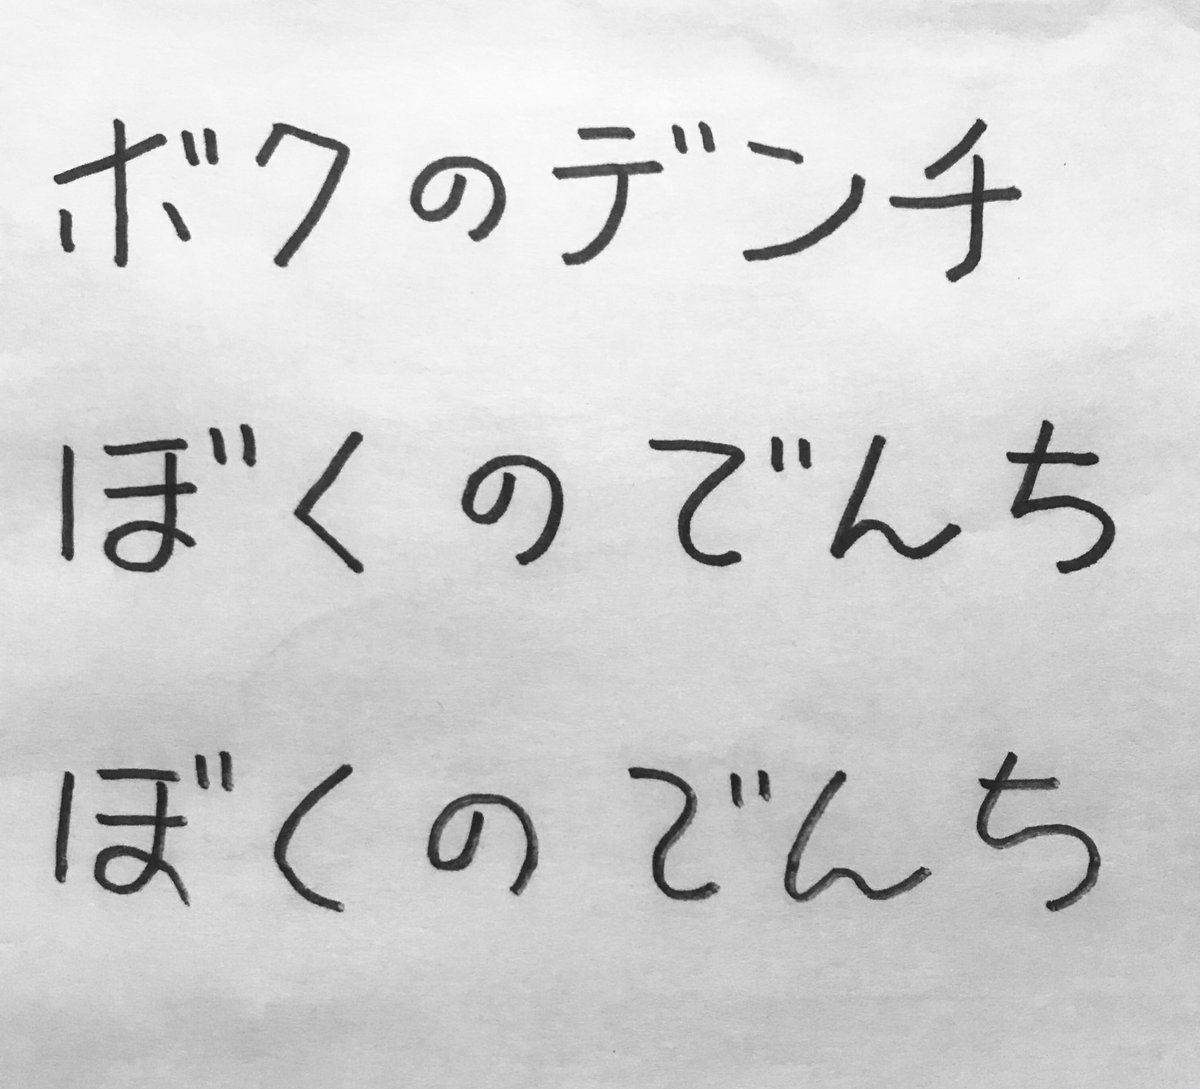 ボクのデンチ
ぼくのでんち
ぼくのでんち